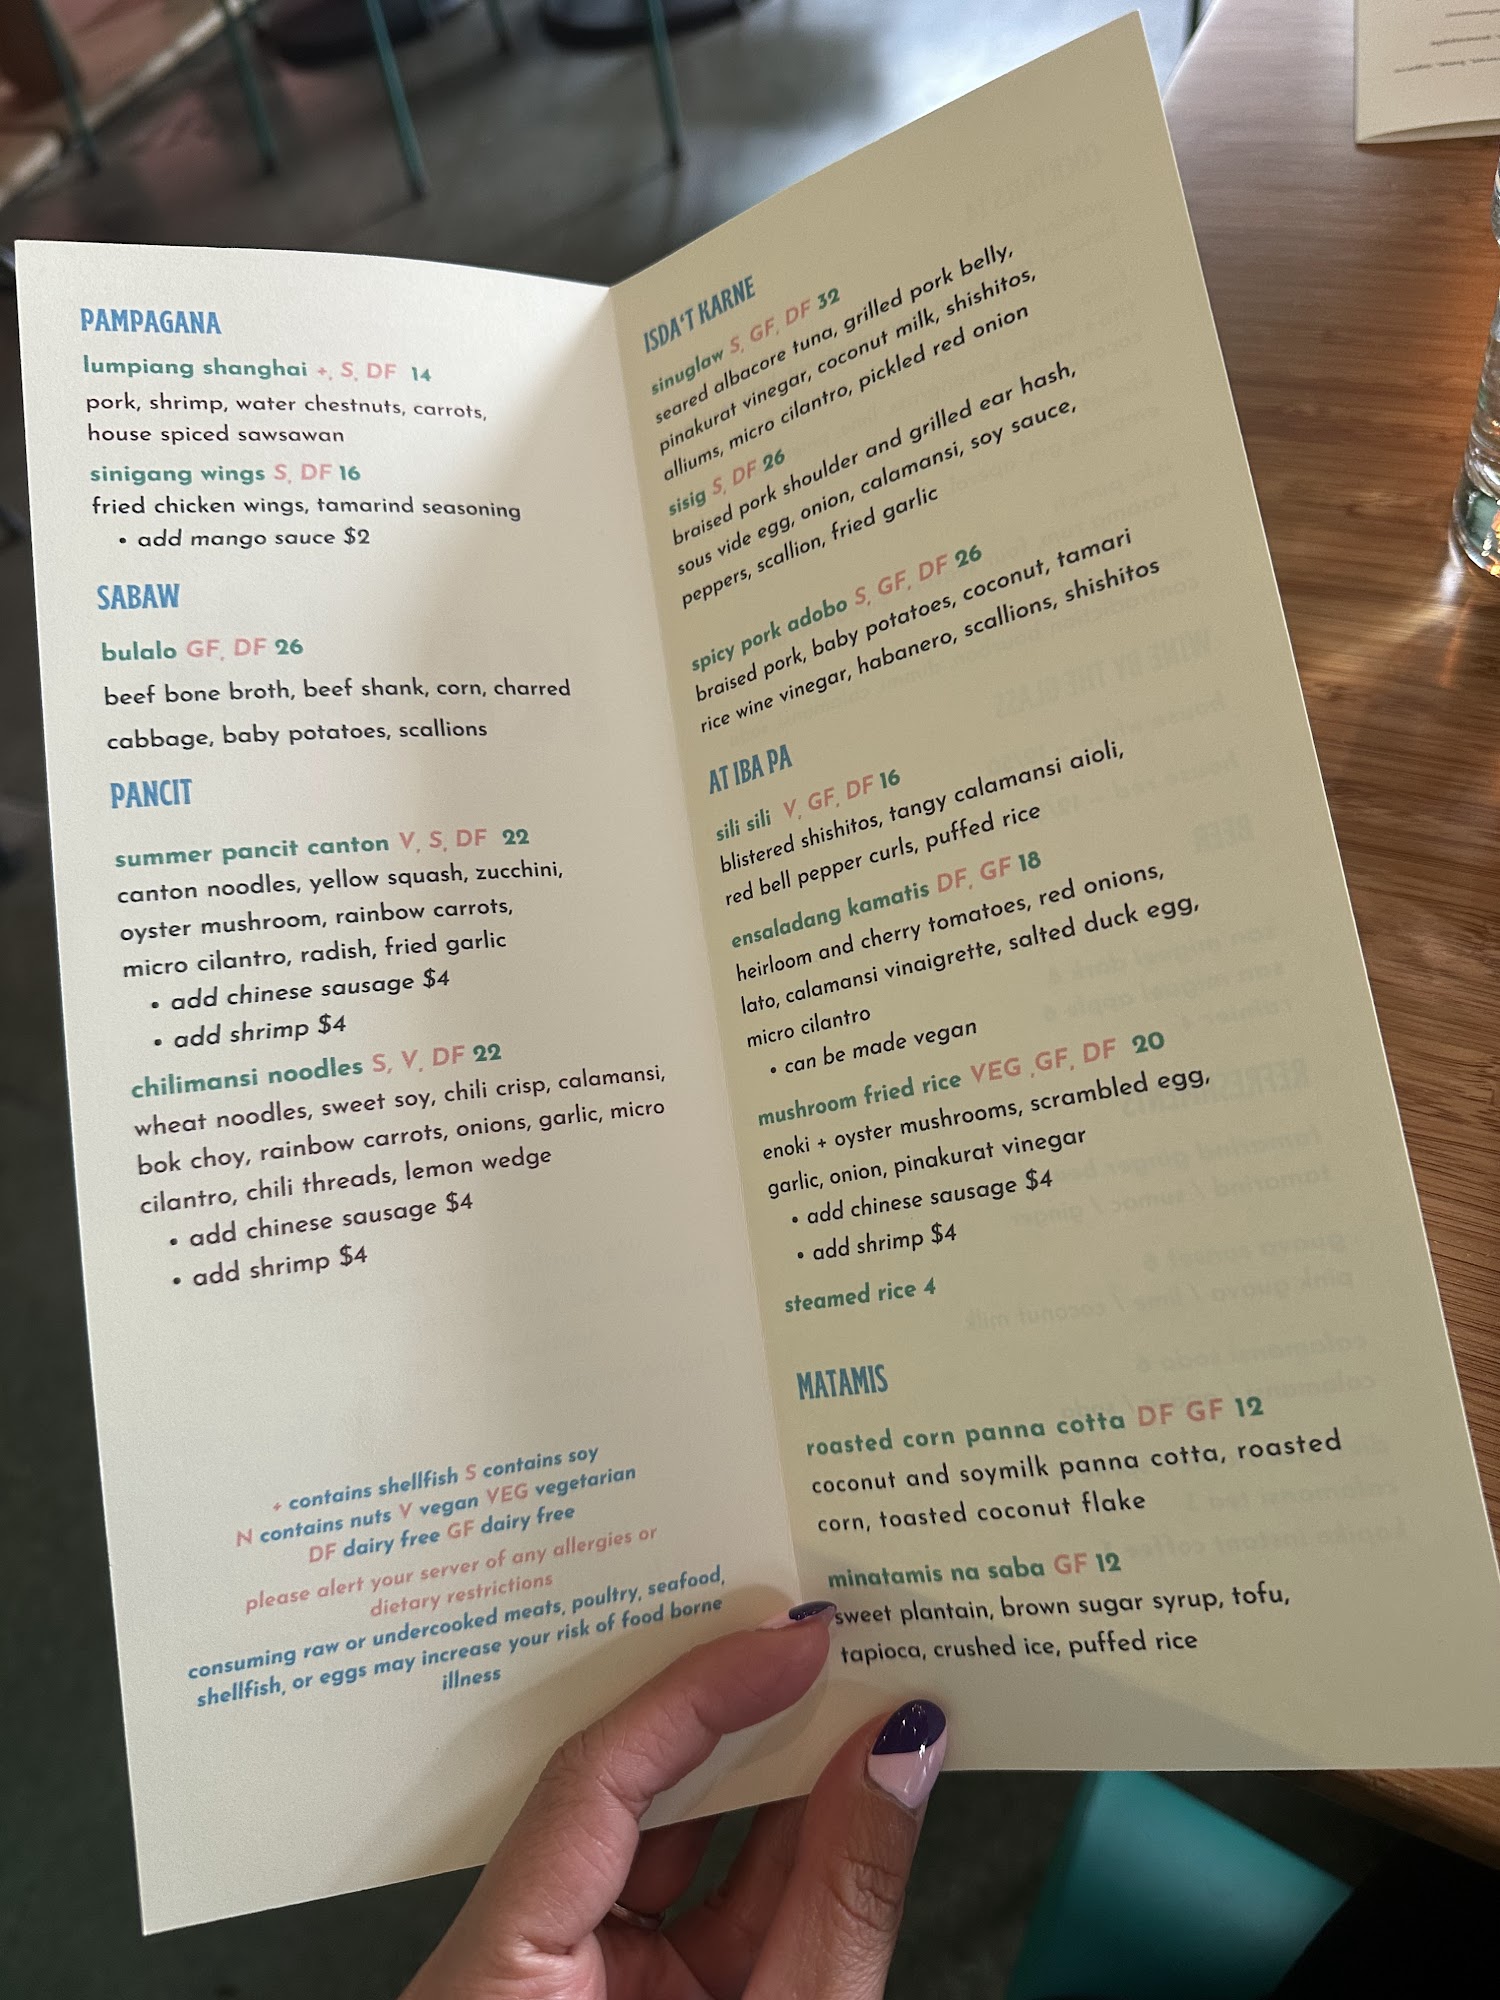 PAMPAGANA
lumpiang shanghai +, S, DF 14
pork, shrimp, water chestnuts, carrots,
house spiced sawsawan
sinigang wings S, DF 16
fried chicken wings, tamarind seasoning
• add mango sauce $2
SABAW
bulalo GF, DF 26
beef bone broth, beef shank, corn, charred
cabbage, baby potatoes, scallions
PANCIT
summer pancit canton V, S, DF 22
canton noodles, yellow squash, zucchini,
oyster mushroom, rainbow carrots,
micro cilantro, radish, fried garlic
• add chinese sausage $4
• add shrimp $4
chilimansi noodles S, V, DF 22
wheat noodles, sweet soy, chili crisp, calamansi,
bok choy, rainbow carrots, onions, garlic, micro
cilantro, chili threads, lemon wedge
• add chinese sausage $4
• add shrimp $4
+ contains shellfish S contains soy
N contains nuts V vegan VEG vegetarian
DF dairy free GF dairy free
please alert your server of any allergies or
dietary restrictions
consuming raw or undercooked meats, poultry, seafood,
shellfish, or eggs may increase your risk of food borne
illness
ISDA'T KARNE
sinuglaw S, GF, DF 32
seared albacore tuna, grilled pork belly,
pinakurat vinegar, coconut milk, shishitos,
alliums, micro cilantro, pickled red onion
sisig S, DF 26
braised pork shoulder and grilled ear hash,
sous vide egg, onion, calamansi, soy sauce,
peppers, scallion, fried garlic
spicy pork adobo S, GF, DF 26
braised pork, baby potatoes, coconut, tamari
rice wine vinegar, habanero, scallions, shishitos
AT IBA PA
sili sili V, GF, DF 16
blistered shishitos, tangy calamansi aioli,
red bell pepper curls, puffed rice
ensaladang kamatis DF, GF 18
heirloom and cherry tomatoes, red onions,
lato, calamansi vinaigrette, salted duck egg,
micro cilantro
• can be made vegan
mushroom fried rice VEG ,GF, DF 20
enoki + oyster mushrooms, scrambled egg,
garlic, onion, pinakurat vinegar
• add chinese sausage $4
• add shrimp $4
steamed rice 4
MATAMIS
roasted corn panna cotta DF GF 12
coconut and soymilk panna cotta, roasted
corn, toasted coconut flake
minatamis na saba GF 12
sweet plantain, brown sugar syrup, tofu,
tapioca, crushed ice, puffed rice